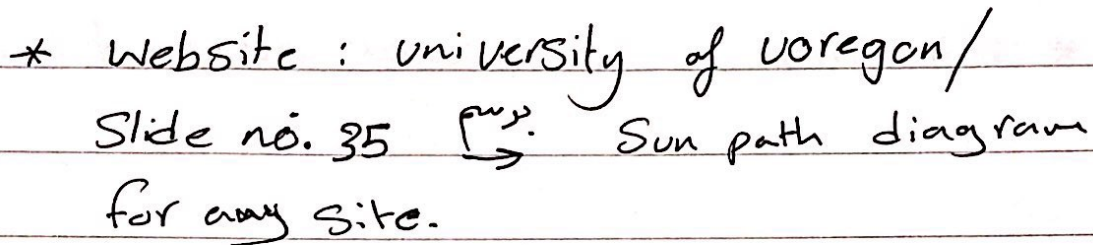 * Website : university of uoregon/
Slide no. 35 يرسم → Sun path diagram
for any site.